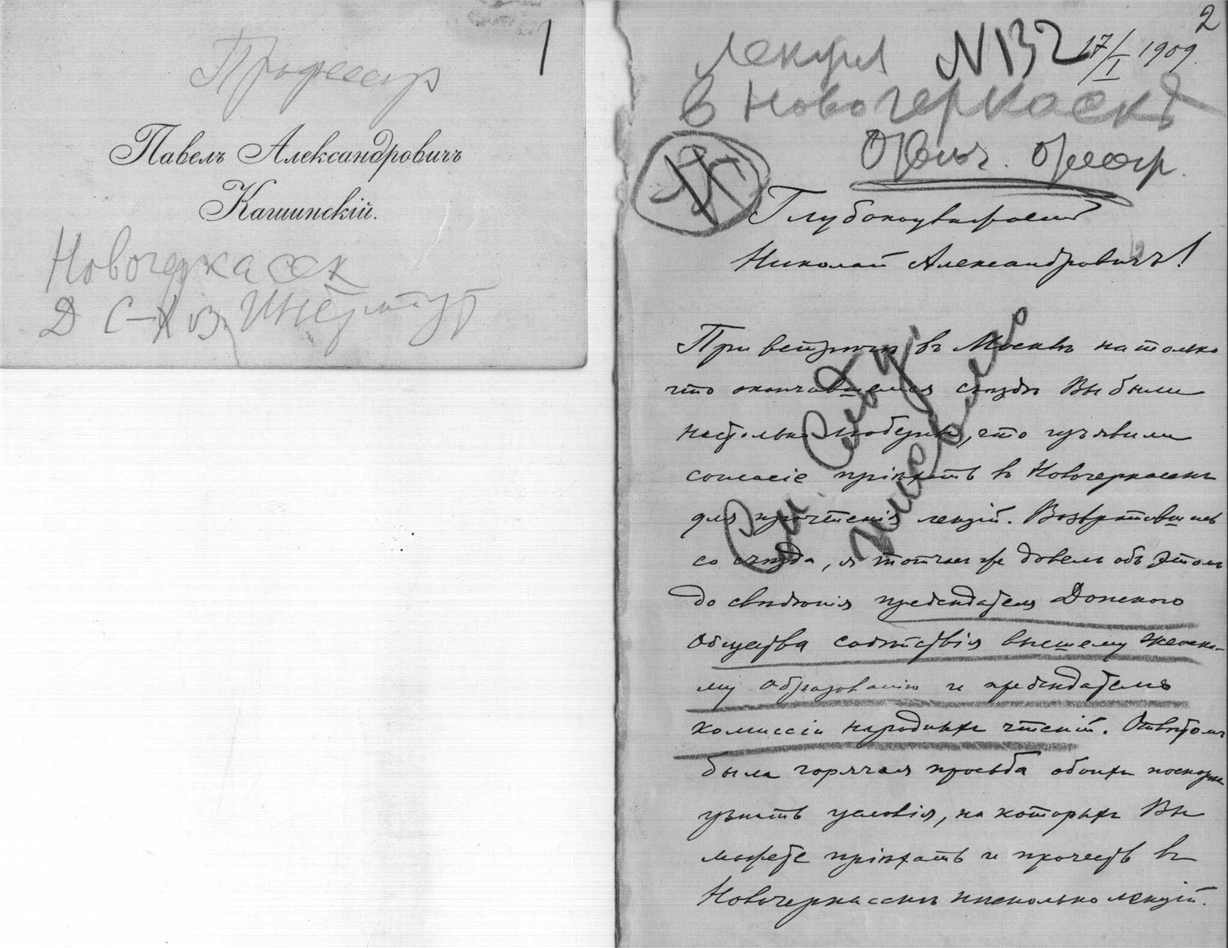 1
Профессор
Павелъ Александровичъ
Кашинскій.
Новочеркасск
Д С-Хоз. Институт
2
лекция N132 17/I 1909
в Новочеркаскѣ
Глубокоуважаемый
Николай Александровичъ!
При встрѣчѣ въ Москвѣ на только
что окончившемся съѣздѣ Вы были
настолько любезны, что изъявили
согласіе пріѣхать въ Новочеркасскъ
для прочтенія лекцій. Возвратившись
со съѣзда, я тотчасъ же довелъ объ этомъ
до свѣдѣнія предсѣдателя Донского
Общества содѣйствія высшему женско-
му образованію и предсѣдателя
комиссіи народныхъ чтеній. Отвѣтомъ
была горячая просьба обоихъ поскорѣе
узнать условія, на которыхъ Вы
можете пріѣхать и прочесть въ
Новочеркасскѣ нѣсколько лекцій.
См. Слѣд.
письмо